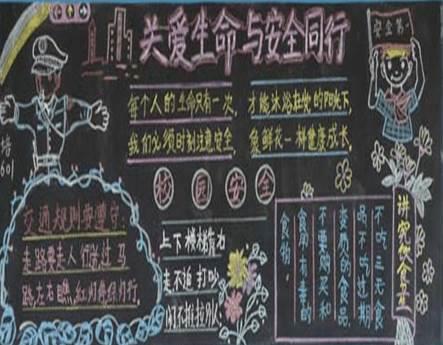 关爱生命与安全同行
安全第一
每个人的生命只有一次，才能沐浴在
的阳光下，
我们必须时刻注意安全，像鲜花一样健康成长。
601
校园安全
交通规则要遵守，
走路要走人行
过马
路左右瞧，红灯
绿灯行。
上下楼梯靠右
走不追打
不推拉
讲究饮食
不吃三无食
不吃过期
变质的食品
不要购买和
食用有毒的
食物。